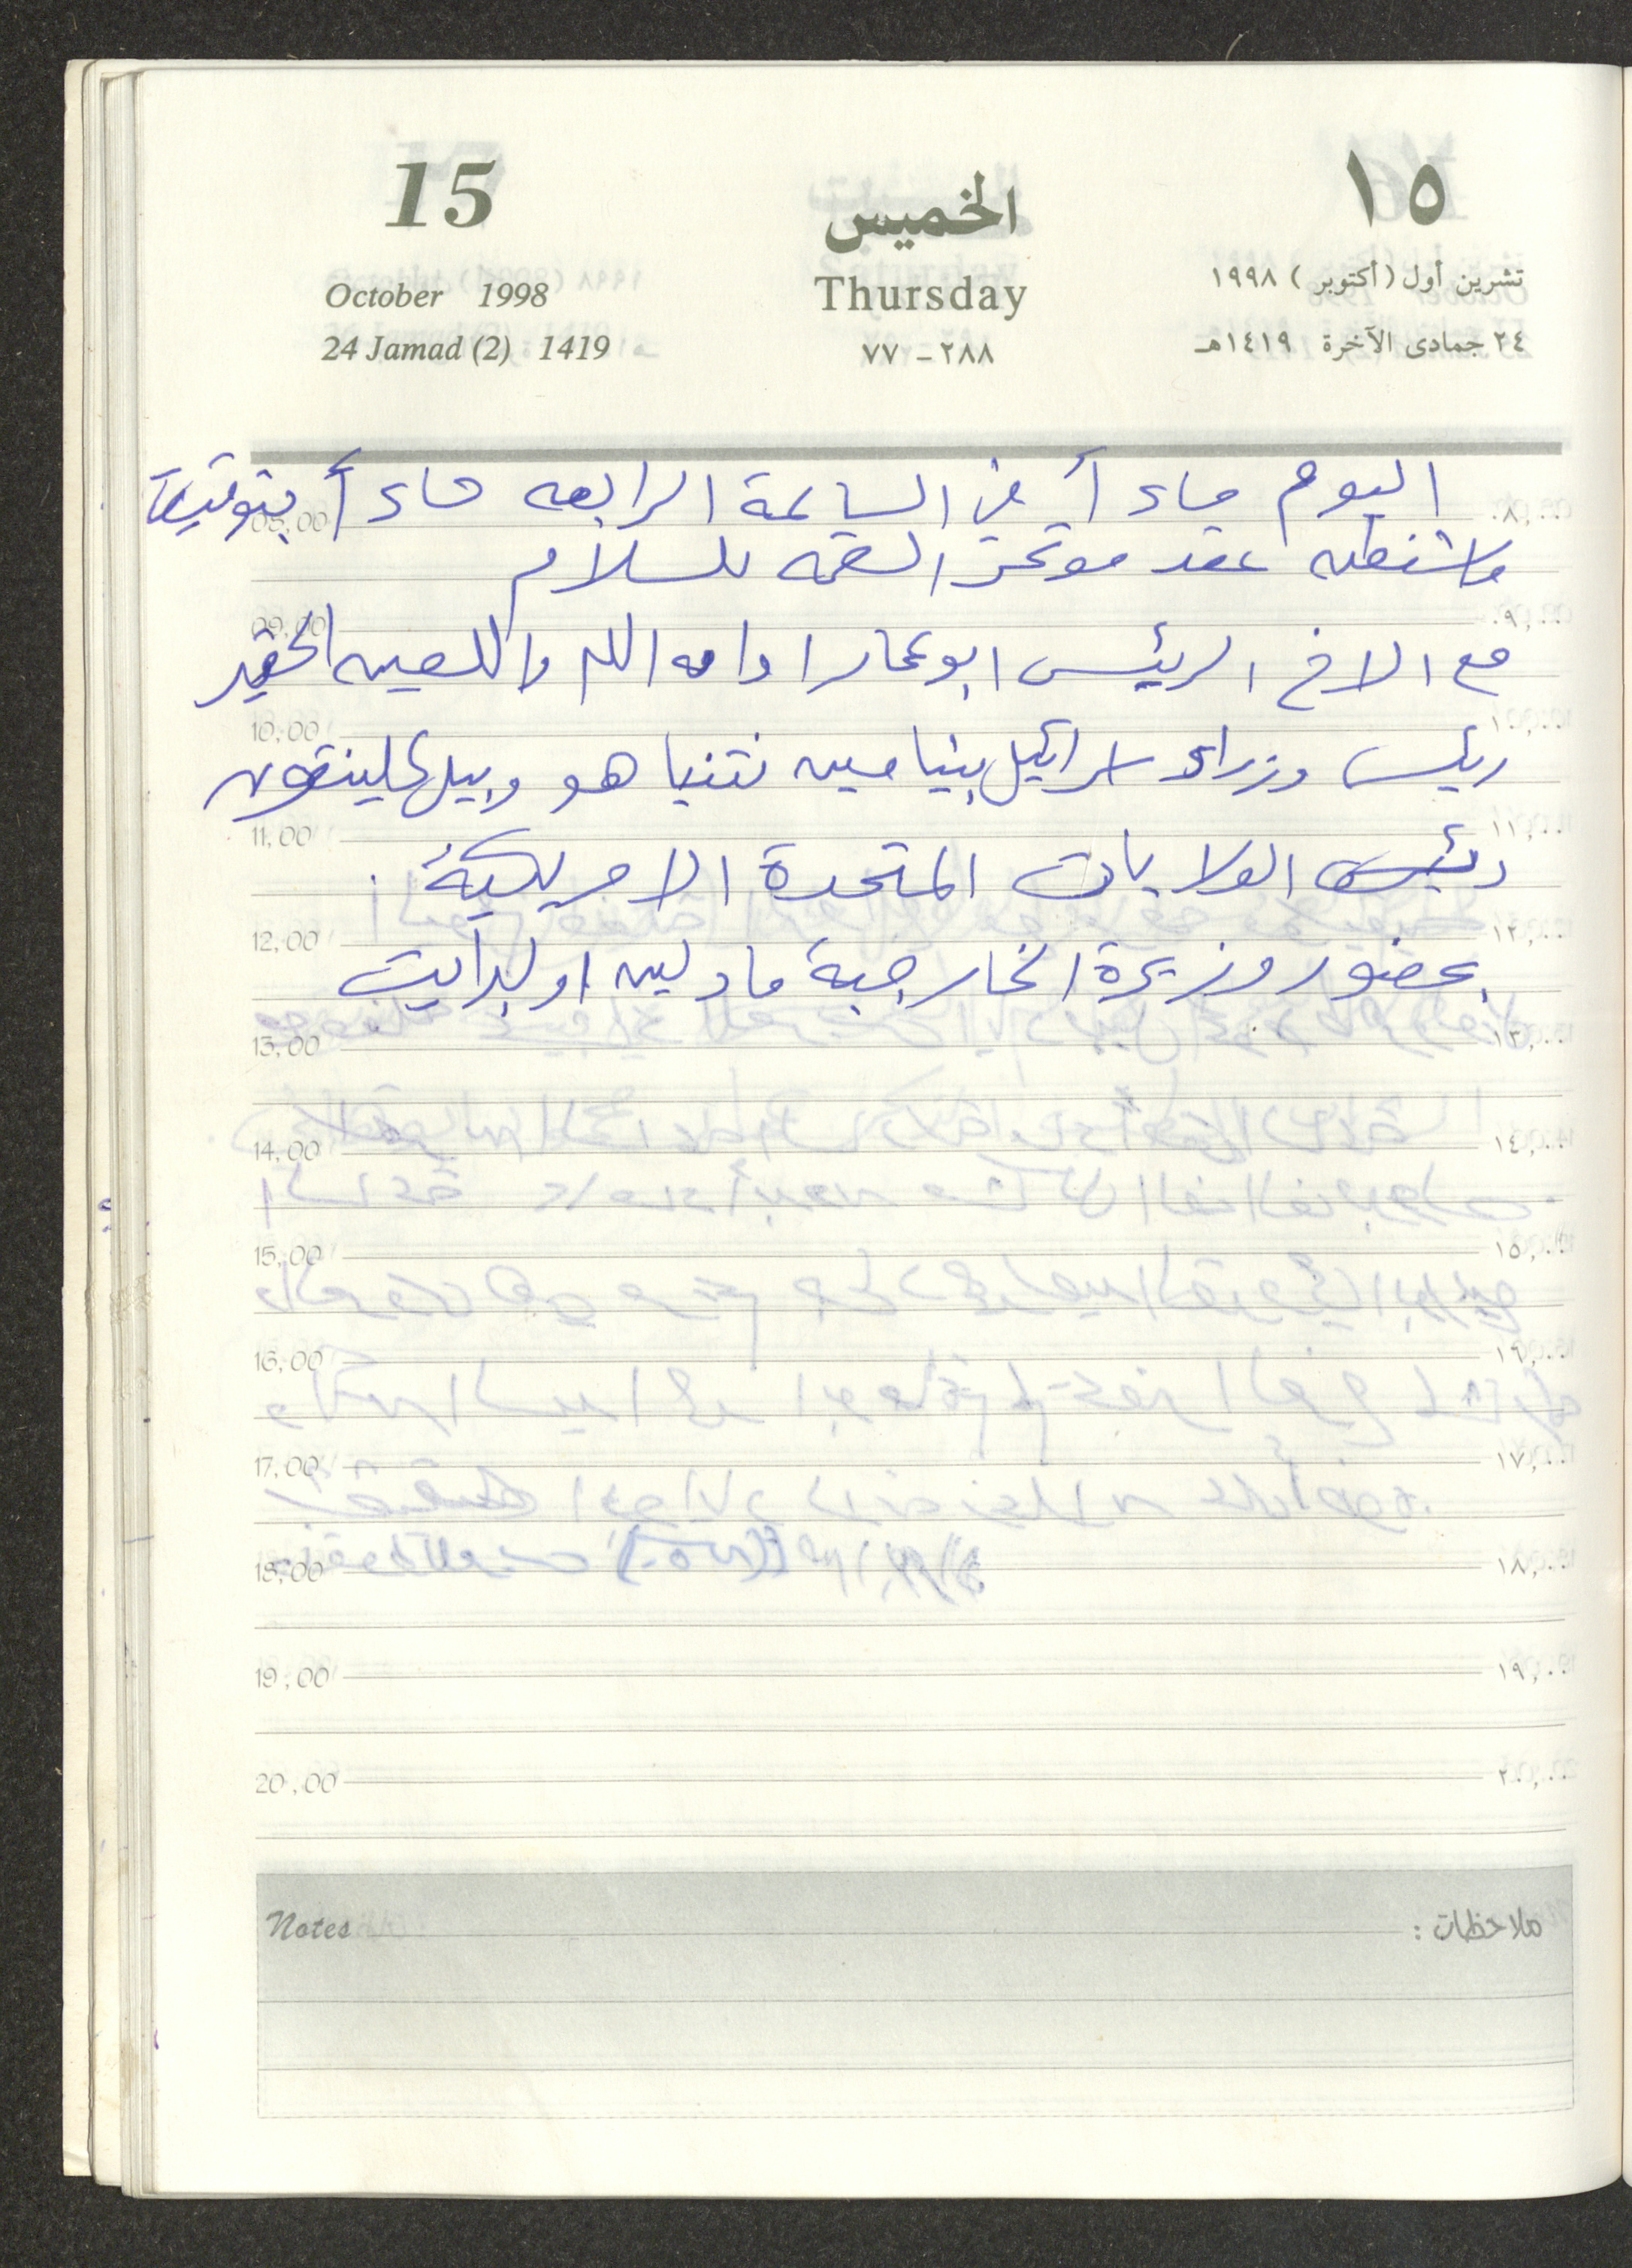 15 الخميس ١٥
October 1998 Thursday تشرين أول (أكتوبر) ١٩٩٨
24 Jamad (2) 1419 ٢٨٨ - ٧٧ ٢٤ جمادى الآخرة ١٤١٩هـ
اليوم مساءً في الساعة الرابعة مساءً بتوقيت
واشنطن عقد مؤتمر القمه للسلام
مع الاخ الرئيس ابو عمار ادامه الله واللعين الحقير
رئيس وزراء اسرائيل بنيامين نتنياهو وبيل كلينتون
رئيس الولايات المتحدة الامريكية .
بحضور وزيرة الخارجية مادلين اولبرايت
08,00 ٨,٠٠
09,00 ٩,٠٠
10,00 ١٠,٠٠
11,00 ١١,٠٠
12,00 ١٢,٠٠
13,00 ١٣,٠٠
14,00 ١٤,٠٠
15,00 ١٥,٠٠
16,00 ١٦,٠٠
17,00 ١٧,٠٠
18,00 ١٨,٠٠
19,00 ١٩,٠٠
20,00 ٢٠,٠٠
Notes ملاحظات :